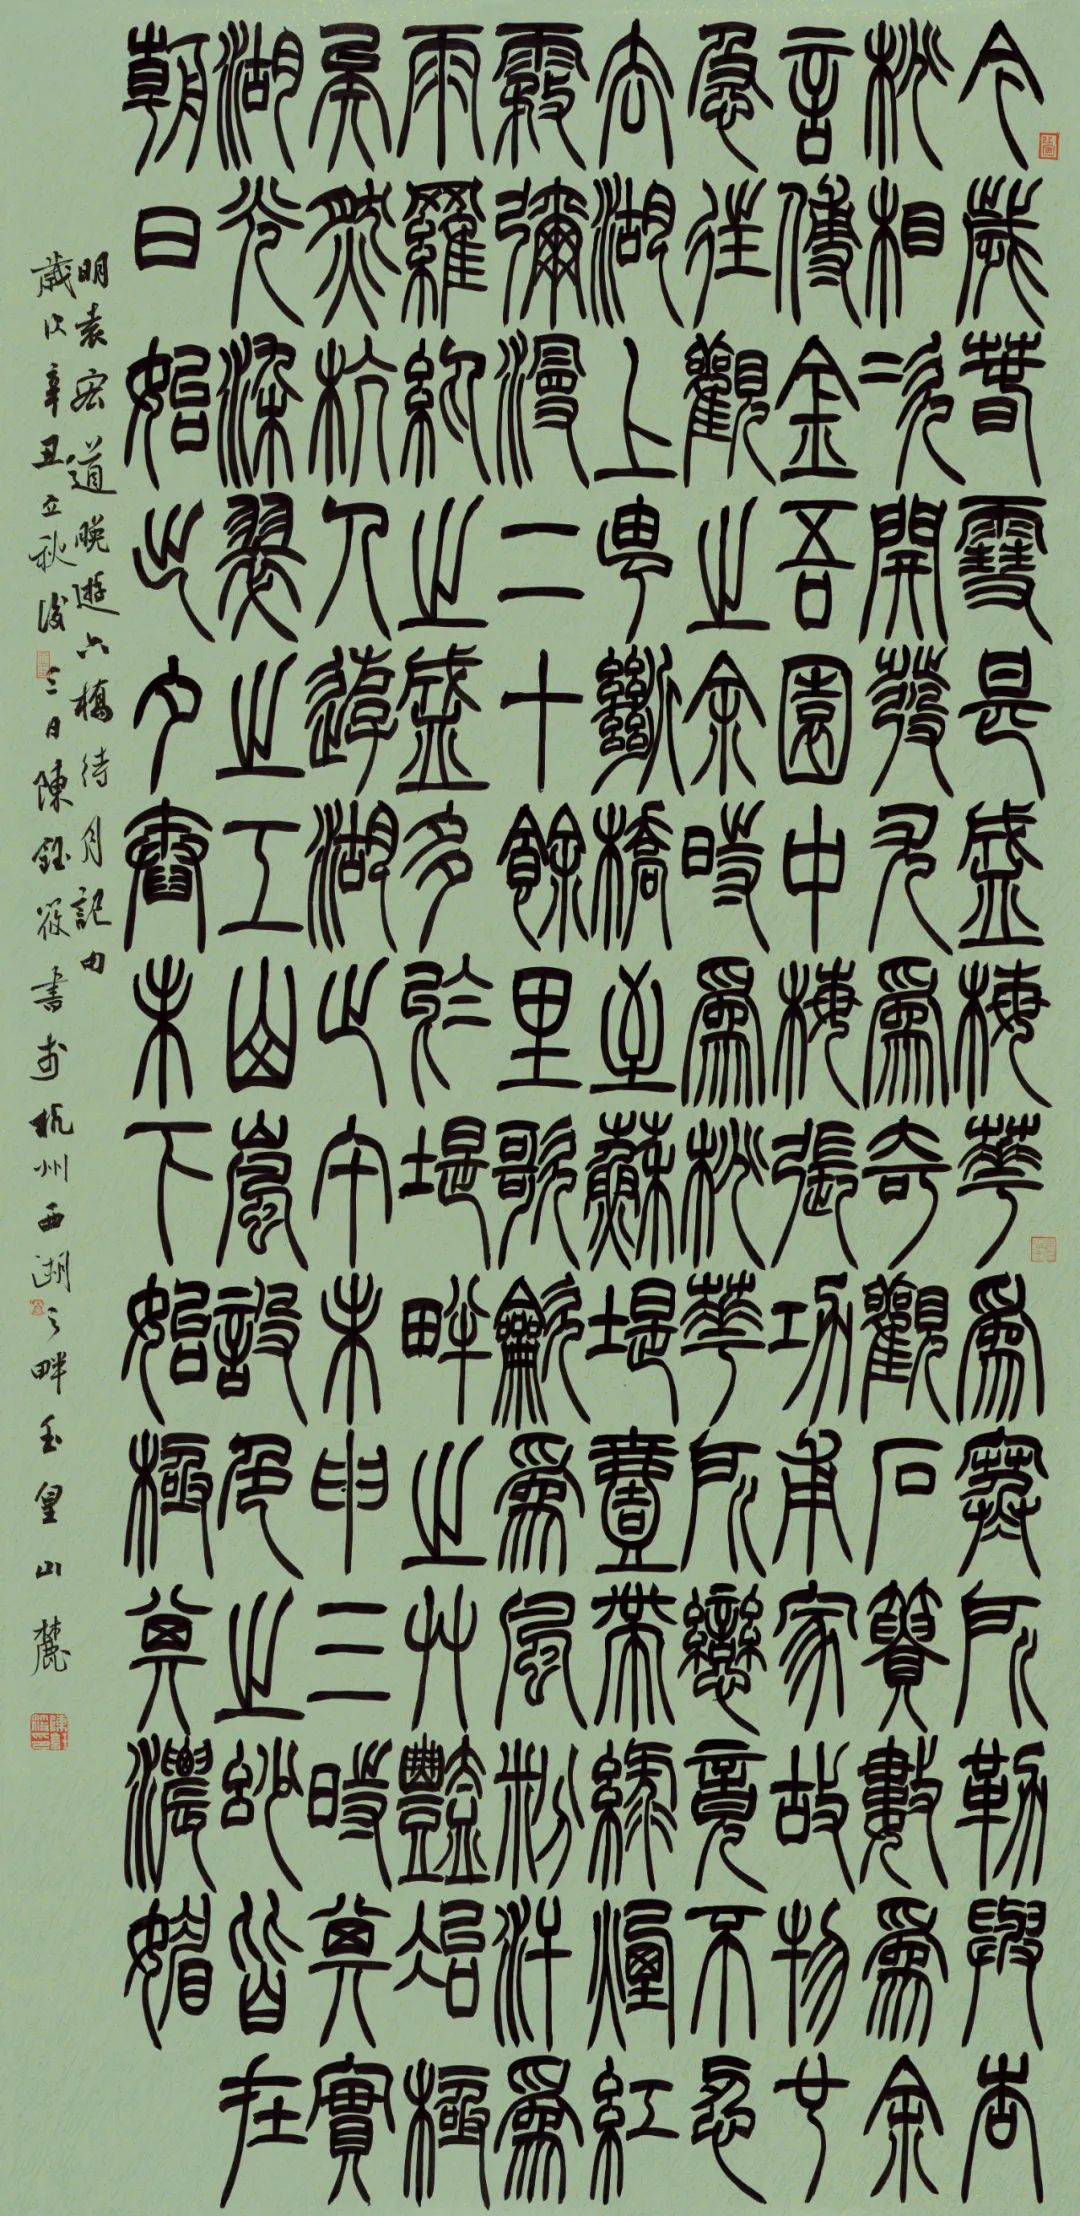 今歲春雪甚盛梅華爲寒所勒與杏
桃相次開發尤爲奇觀石簣數爲余
言傅金吾園中梅張功甫家故物也
急往觀之余時爲桃華所戀竟不忍
去湖上由斷橋至蘇堤壹帶綠煙紅
霧彌漫二十餘里歌龡爲風粉汗爲
雨羅紈之盛多於堤畔之艸豔冶極
矣然杭人遊湖止午未申三時其實
湖光染翠之工山嵐設色之妙皆在
朝日始出夕舂未下始極其濃媚
明袁宏道晚遊六橋待月記句
歲次辛丑立秋後三日陳鈺筱書於杭州西湖之畔玉皇山麓